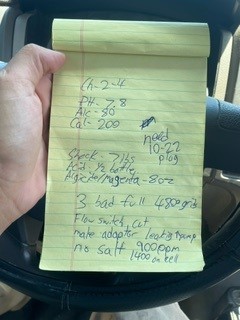 Ch-2-4
PH-7.8
Alc-80
Cal-200
need
10-22
plog
Shock-7lbs
Acid 1/2 bottle
Algicite/magenta-8oz
3 bad full 4800 grids
Flow switch, cut
male adaptor leaking pump
no salt 900ppm
1400 on kell